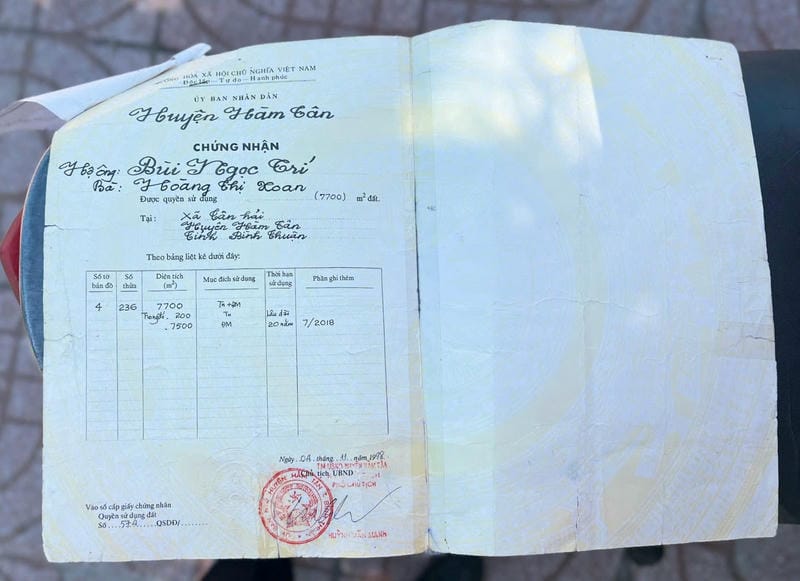 CỘNG HÒA XÃ HỘI CHỦ NGHĨA VIỆT NAM
Độc lập — Tự do — Hạnh phúc
ỦY BAN NHÂN DÂN
Huyện Hàm Tân
CHỨNG NHẬN
Hộ ông: Bùi Ngọc Trí
Bà: Hoàng Thị Xoan
Được quyền sử dụng (7700) m² đất.
Tại: Xã Tân hải
Huyện Hàm Tân
Tỉnh Bình Thuận
Theo bảng liệt kê dưới đây:
Số tờ bản đồ Số thửa Diện tích (m²) Mục đích sử dụng Thời hạn sử dụng Phần ghi thêm
4 236 7700
200 Lâu dài
7500 20 năm 7/2018
Ngày tháng 11 năm 1998
TM UBND HUYỆN HÀM TÂN
Chủ tịch UBND
PHÓ CHỦ TỊCH
Vào sổ cấp giấy chứng nhận
Quyền sử dụng đất
Số QSDĐ/